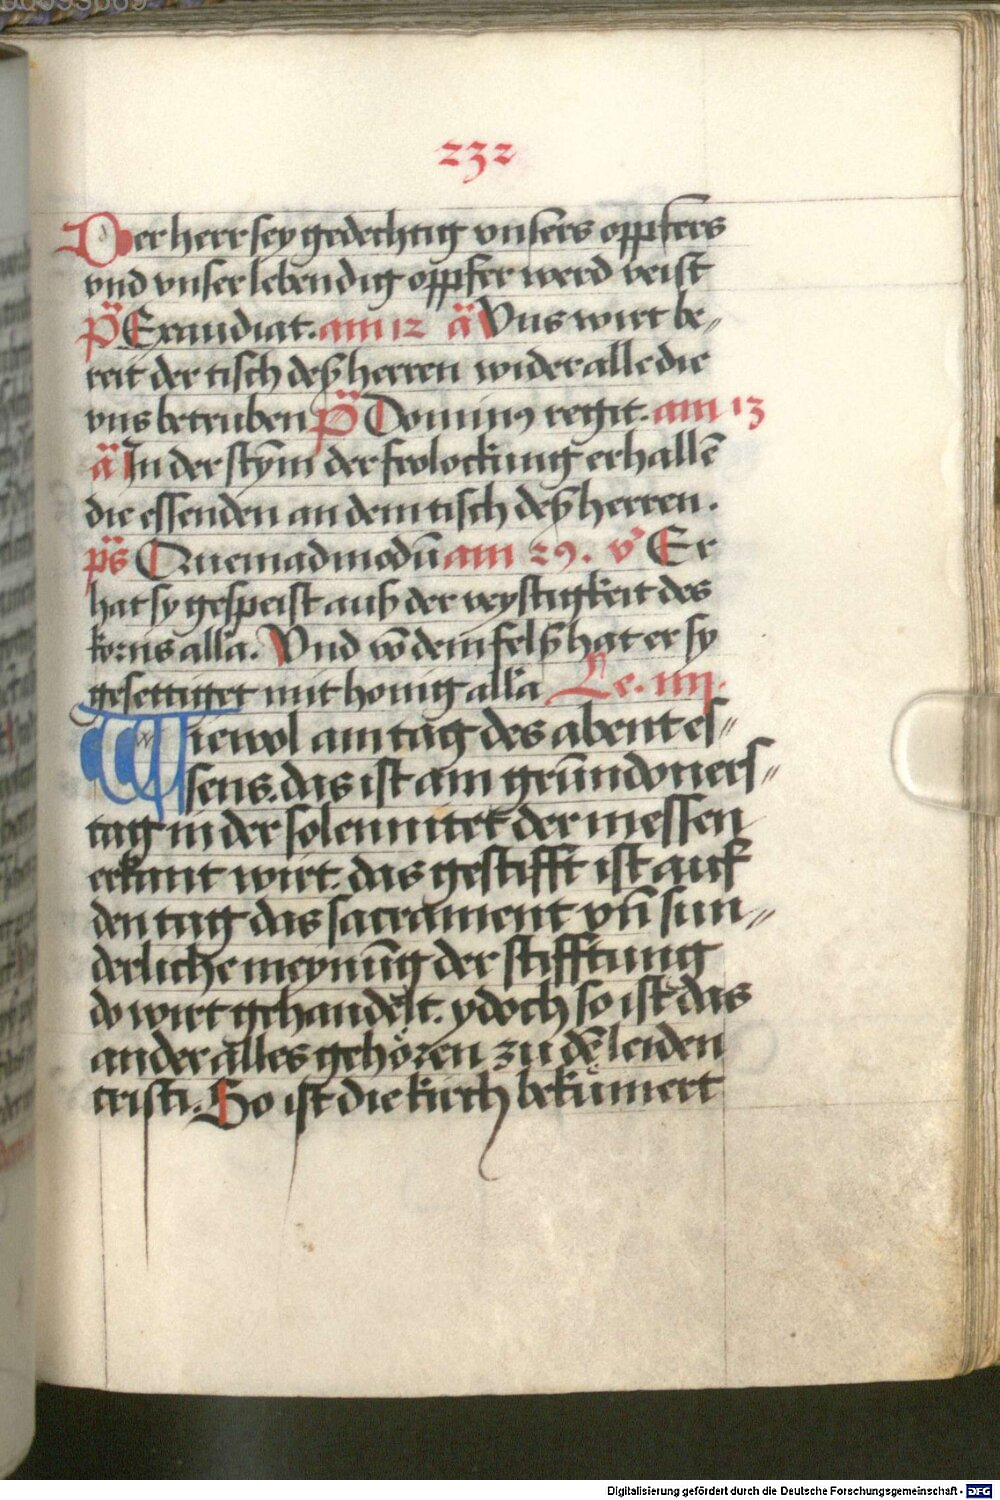 232
Der herr sey gedechtig vnsers oppfers
vnd vnser lebendig oppfer werd veist
p̈s Exaudiat. am 12 ä Vns wirt be„
reit der tisch deß herren wider alle die
vns betruben p̈s Dominꝰ regit. am 13
ä In der stÿm der frolockung erhallē
die essenden an dem tisch deß herren.
p̈s Quemadmodū am 29. v̓ Er
hat sy gespeist auß der veystigkeit des
korns alla. Vnd vō dem felß hat er sy
gesettiget mit honig alla Le. iiij.
Wiewol am tag des abent es„
sens. das ist am grūndoners„
tag in der solennitet der messen
erkant wirt. das gestifft ist auf
den tag das sacrament vn̄ sun„
derliche meynūg der stifftung
do wirt gehandelt. ydoch so ist das
ander alles gehören zu dē leiden
cristi. So ist die kirch bekümert
Digitalisierung gefördert durch die Deutsche Forschungsgemeinschaft - DFG